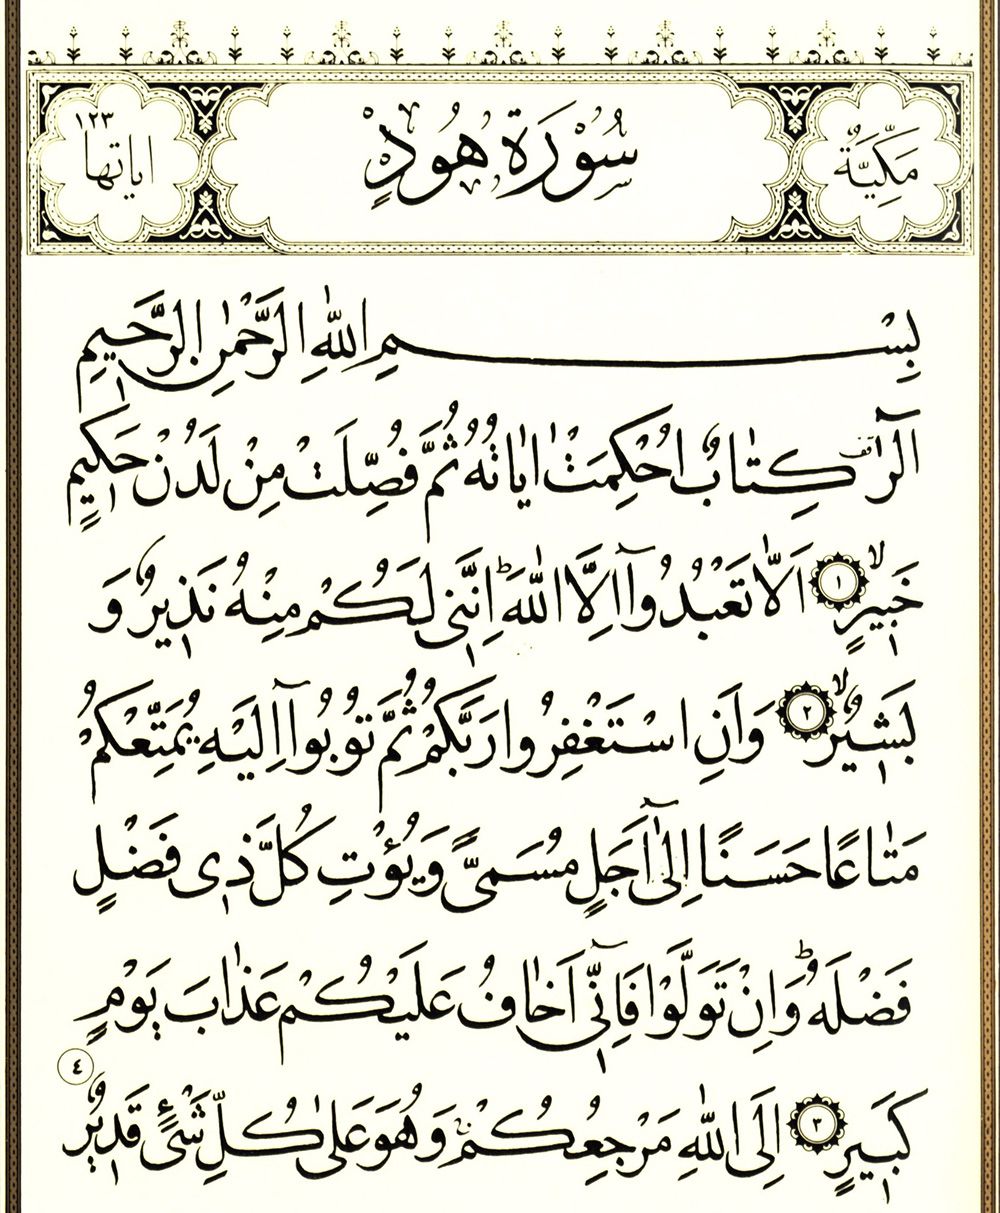 مَكِّيَّةٌ
سُوْرَةُ هُوْدٍ
اٰيَاتُهَا ١٢٣
بِسْمِ اللّٰهِ الرَّحْمٰنِ الرَّحٖيمِ
الٓرٰ كِتَابٌ اُحْكِمَتْ اٰيَاتُهُ ثُمَّ فُصِّلَتْ مِنْ لَدُنْ حَكٖيمٍ
خَبٖيرٍۙ ١ اَلَّا تَعْبُدُٓوا اِلَّا اللّٰهَؕ اِنَّنٖى لَكُمْ مِنْهُ نَذٖيرٌ وَ
بَشٖيرٌۙ ٢ وَاَنِ اسْتَغْفِرُوا رَبَّكُمْ ثُمَّ تُوبُٓوا اِلَيْهِ يُمَتِّعْكُمْ
مَتَاعًا حَسَنًا اِلٰٓى اَجَلٍ مُسَمًّى وَيُؤْتِ كُلَّ ذٖى فَضْلٍ
فَضْلَهُؕ وَاِنْ تَوَلَّوْا فَاِنّٖٓى اَخَافُ عَلَيْكُمْ عَذَابَ يَوْمٍ
كَبٖيرٍ ٣ اِلَى اللّٰهِ مَرْجِعُكُمْۚ وَهُوَ عَلٰى كُلِّ شَیْءٍ قَدٖيرٌ ٤